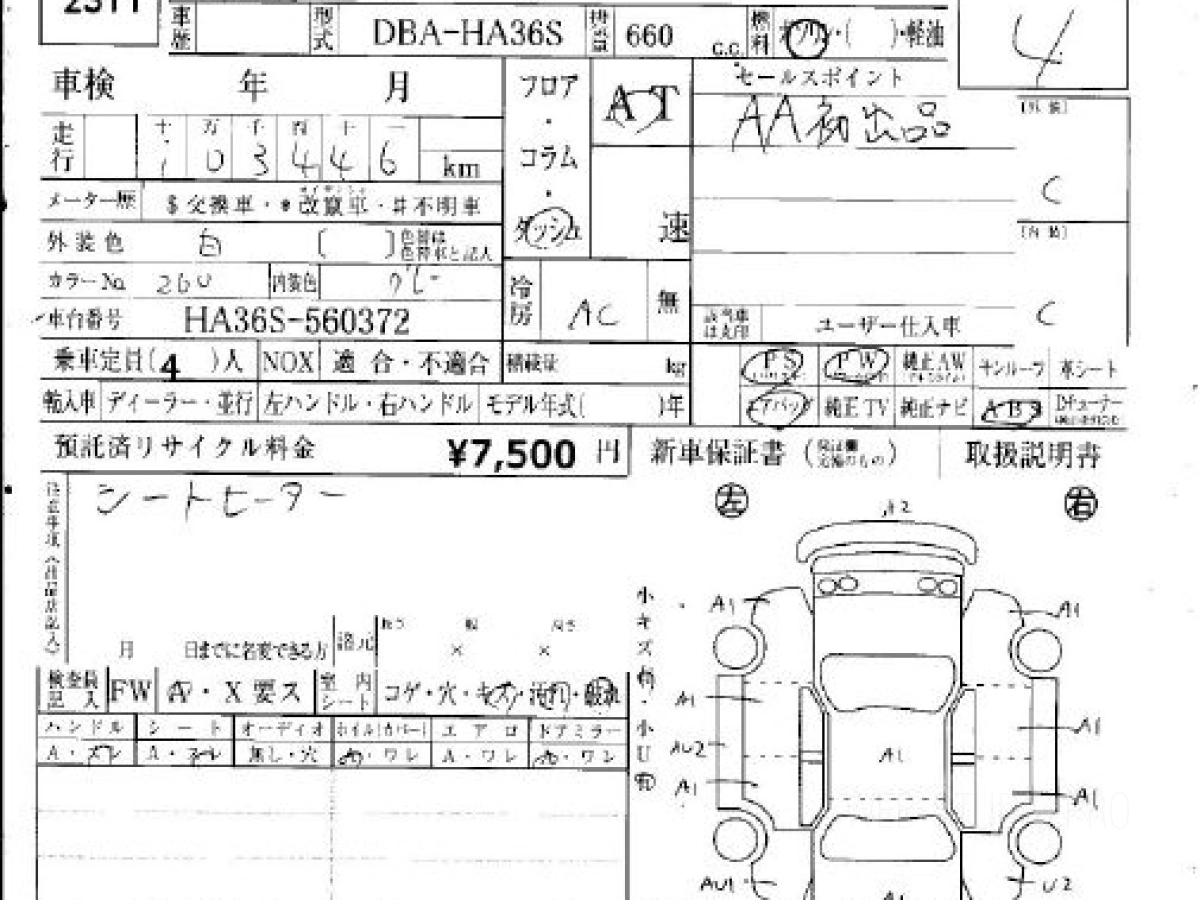 2311
車歴 型式 DBA-HA36S 排気量 660 C.C. 燃料 ガソリン・( )・軽油 4
車検 年 月 フロア・コラム・ダッシュ AT 速 セールスポイント
AA初出品
走行 十 万 千 百 十 一
1 0 3 4 4 6 km
[外装] C
メーター歴 $交換車・*改竄車・#不明車
[内装] C
外装色 白 [ ] 色替は色替車と記入
カラーNo 26U 内装色 グレー 冷房 AC 無
車台番号 HA36S-560372 該当車は丸印 ユーザー仕入車
乗車定員(4)人 NOX 適合・不適合 積載量 kg PS PW 純正AW サンルーフ 革シート
輸入車 ディーラー・並行 左ハンドル・右ハンドル モデル年式( )年 エアバッグ 純正TV 純正ナビ ABS Dチューナー
預託済リサイクル料金 ¥7,500 円 新車保証書 取扱説明書
注意事項(出品店記入) シートヒーター
左 右
A2
小キズ有・小U有
A1 A1
月 日までに名変できる方 諸元 長さ 幅 高さ
× ×
検査員記入 FW A・X要ス 室内シート コゲ・穴・キズ・汚れ・破れ
A1
ハンドル シート オーディオ ホイル(カバー) エアロ ドアミラー
A1
A・スレ A・スレ 無し・穴 A・ワレ A・ワレ A・ワレ
AU2 A1
A1 A1
AU1 U2
A1